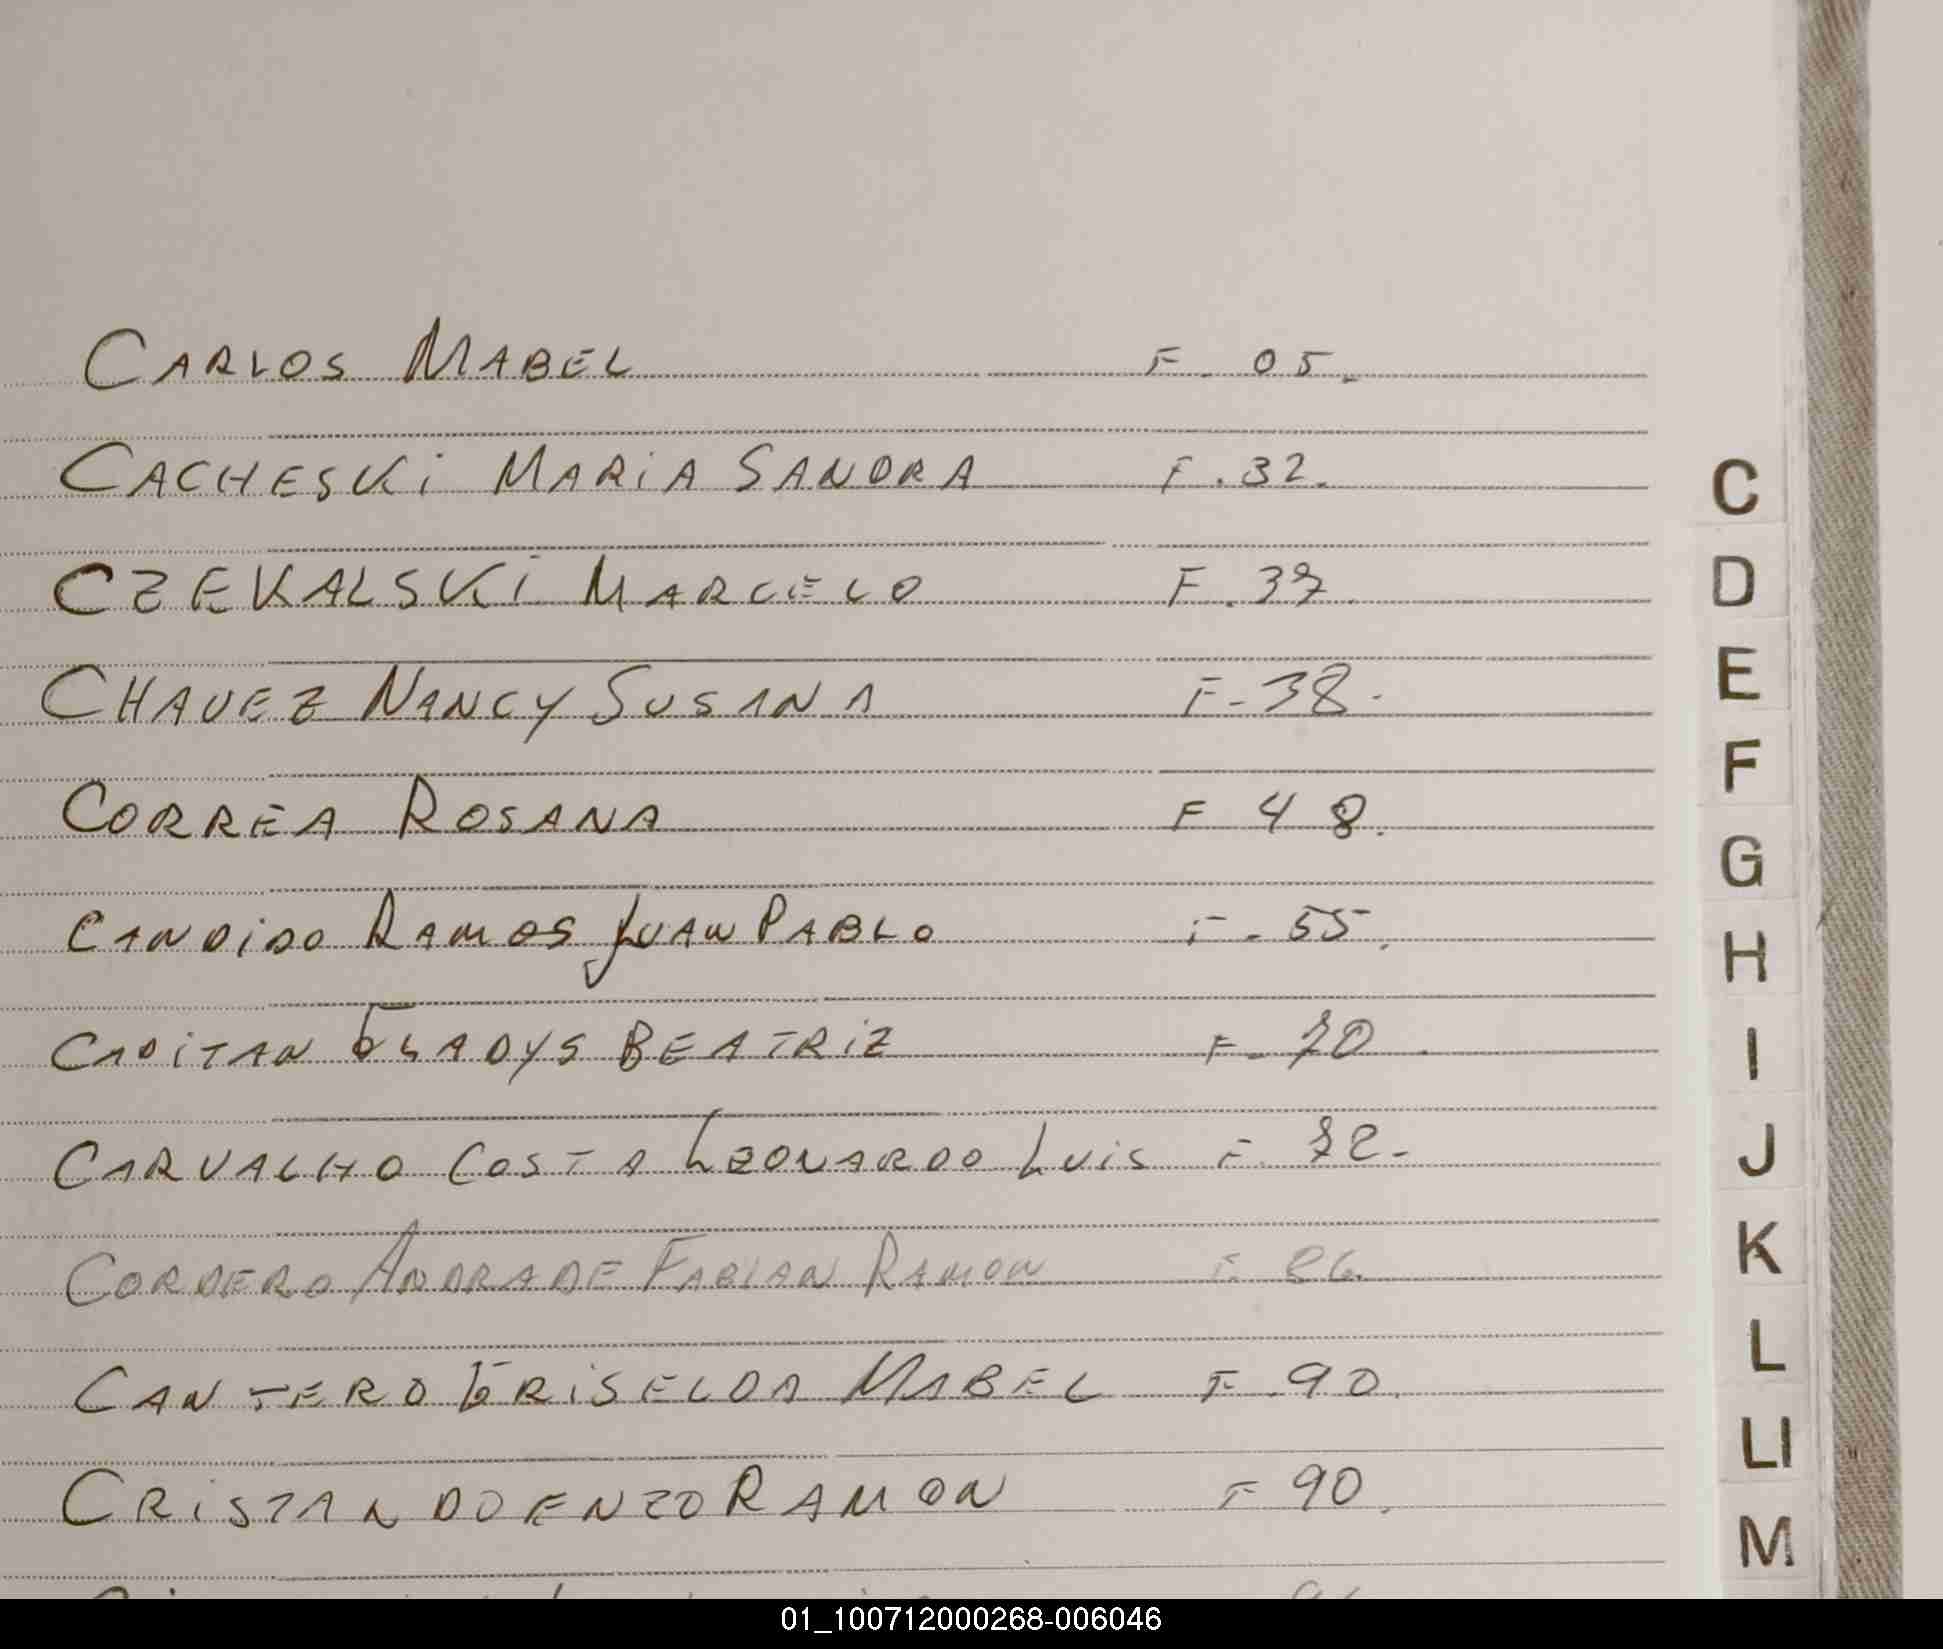 CARLOS MABEL F. 05.
CACHESKi MARiA SANDRA F.32.
CZEKALSKi MARCELO F.37.
CHAVEZ NANCY SUSANA F-38.
CORREA ROSANA F 48.
CANDiDO RAMOS JUAN PABLO F-55.
CAPiTAN GLADYS BEATRiZ F-70.
CARVALHO COSTA LEONARDO LUiS F. 72.
CORDERO ANDRADE FABIAN RAMON F. 86.
CANTERO GRiSELDA MABEL F.90.
CRiSTANDO ENZO RAMON F 90.
C
D
E
F
G
H
I
J
K
L
Ll
M
01_100712000268-006046